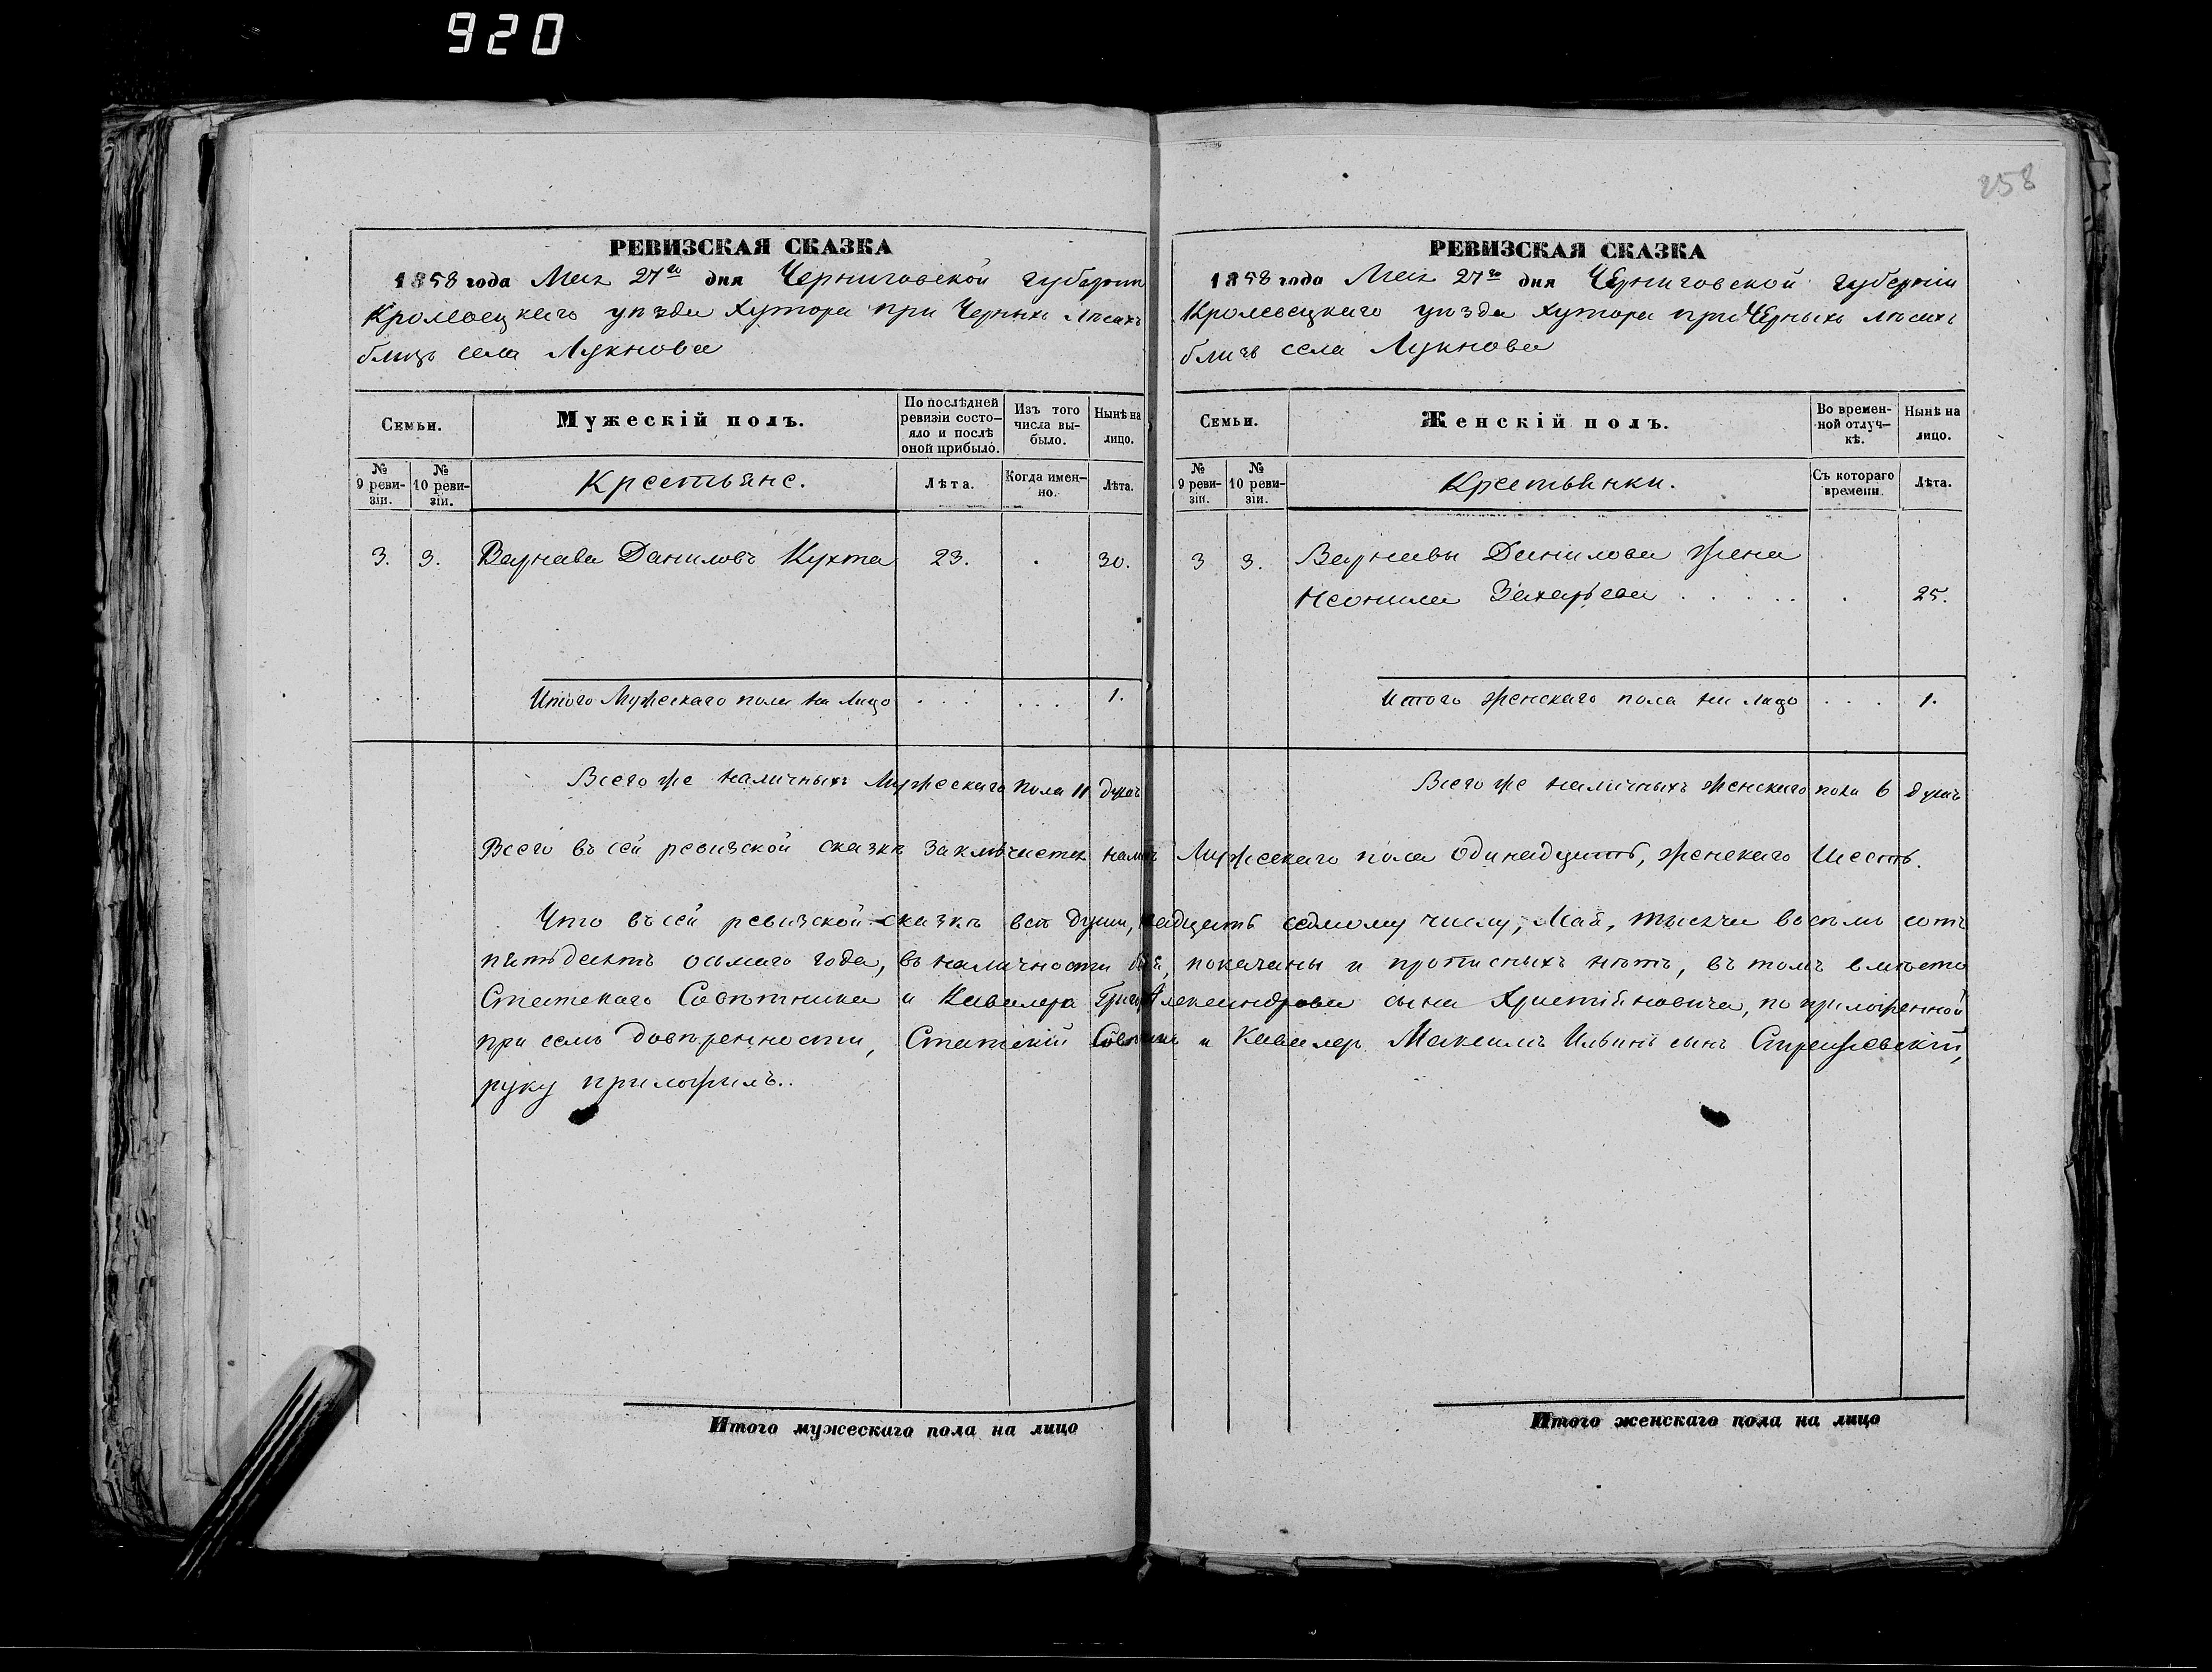 920
258
РЕВИЗСКАЯ СКАЗКА
1858 года Мая 27го дня Черниговской губерніи
Кролевецкаго уѣзда Хутора при Черныхъ лѣсахъ
близъ села Лукнова
Семьи.
Мужескій полъ.
По послѣдней ревизіи состояло и послѣ оной прибыло.
Изъ того числа выбыло.
Нынѣ на лицо.
№ 9 ревизіи.
№ 10 ревизіи.
Крестьяне.
Лѣта.
Когда именно.
Лѣта.
3. 3. Варнава Даниловъ Кухта 23. . 30.
Итого Мужескаго пола на лицо . . . . . . 1.
Всего же наличныхъ Мужескаго пола 11 душъ
РЕВИЗСКАЯ СКАЗКА
1858 года Мая 27го дня Черниговской губерніи
Кролевецкаго уѣзда хутора при Черныхъ лѣсахъ
близъ села Лукнова
Семьи.
Женскій полъ.
Во временной отлучкѣ.
Нынѣ на лицо.
№ 9 ревизіи.
№ 10 ревизіи.
Крестьянки.
Съ котораго времени
Лѣта.
3 3. Варнавы Данилова жена
Неонила Захарьева . . . . . . 25.
Итого женскаго пола на лицо . . . 1.
Всего же наличныхъ женскаго пола 6 душъ
Всего въ сей ревизской сказкѣ заключается Мужескаго пола одинадцать, женскаго шесть.
Что въ сей ревизской сказкѣ всѣ души, седмому числу, Мая, тысяча восемь сотъ
пятьдесятъ осьмаго года, въ наличности показаны и прописныхъ нѣтъ, въ томъ вмѣсто
Статскаго Совѣтника и Кавалера Александрова сына Христіяновича, по приложенной
при семъ довѣренности, Статскій и Кавалер Максимъ Ильинъ сынъ
руку приложилъ..
Итого мужескаго пола на лицо
Итого женскаго пола на лицо